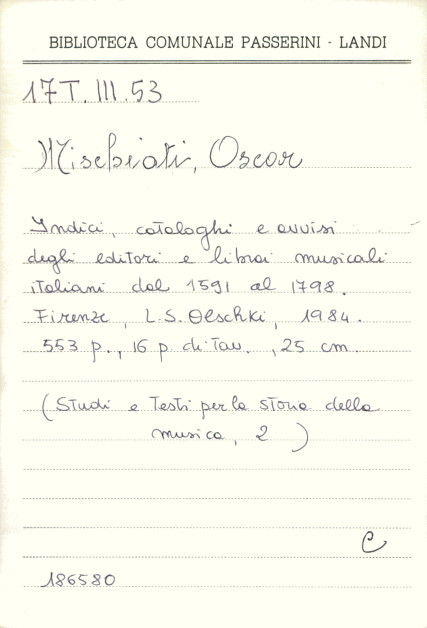 BIBLIOTECA COMUNALE PASSERINI - LANDI
17T.III.53
Mischiati, Oscar
Indici, cataloghi e avvisi
degli editori e librai musicali
italiani dal 1591 al 1798.
Firenze, L.S. Olschki, 1984.
553 p., 16 p. di Tav., 25 cm
(Studi e Testi per la storia della
musica, 2)
C
186580